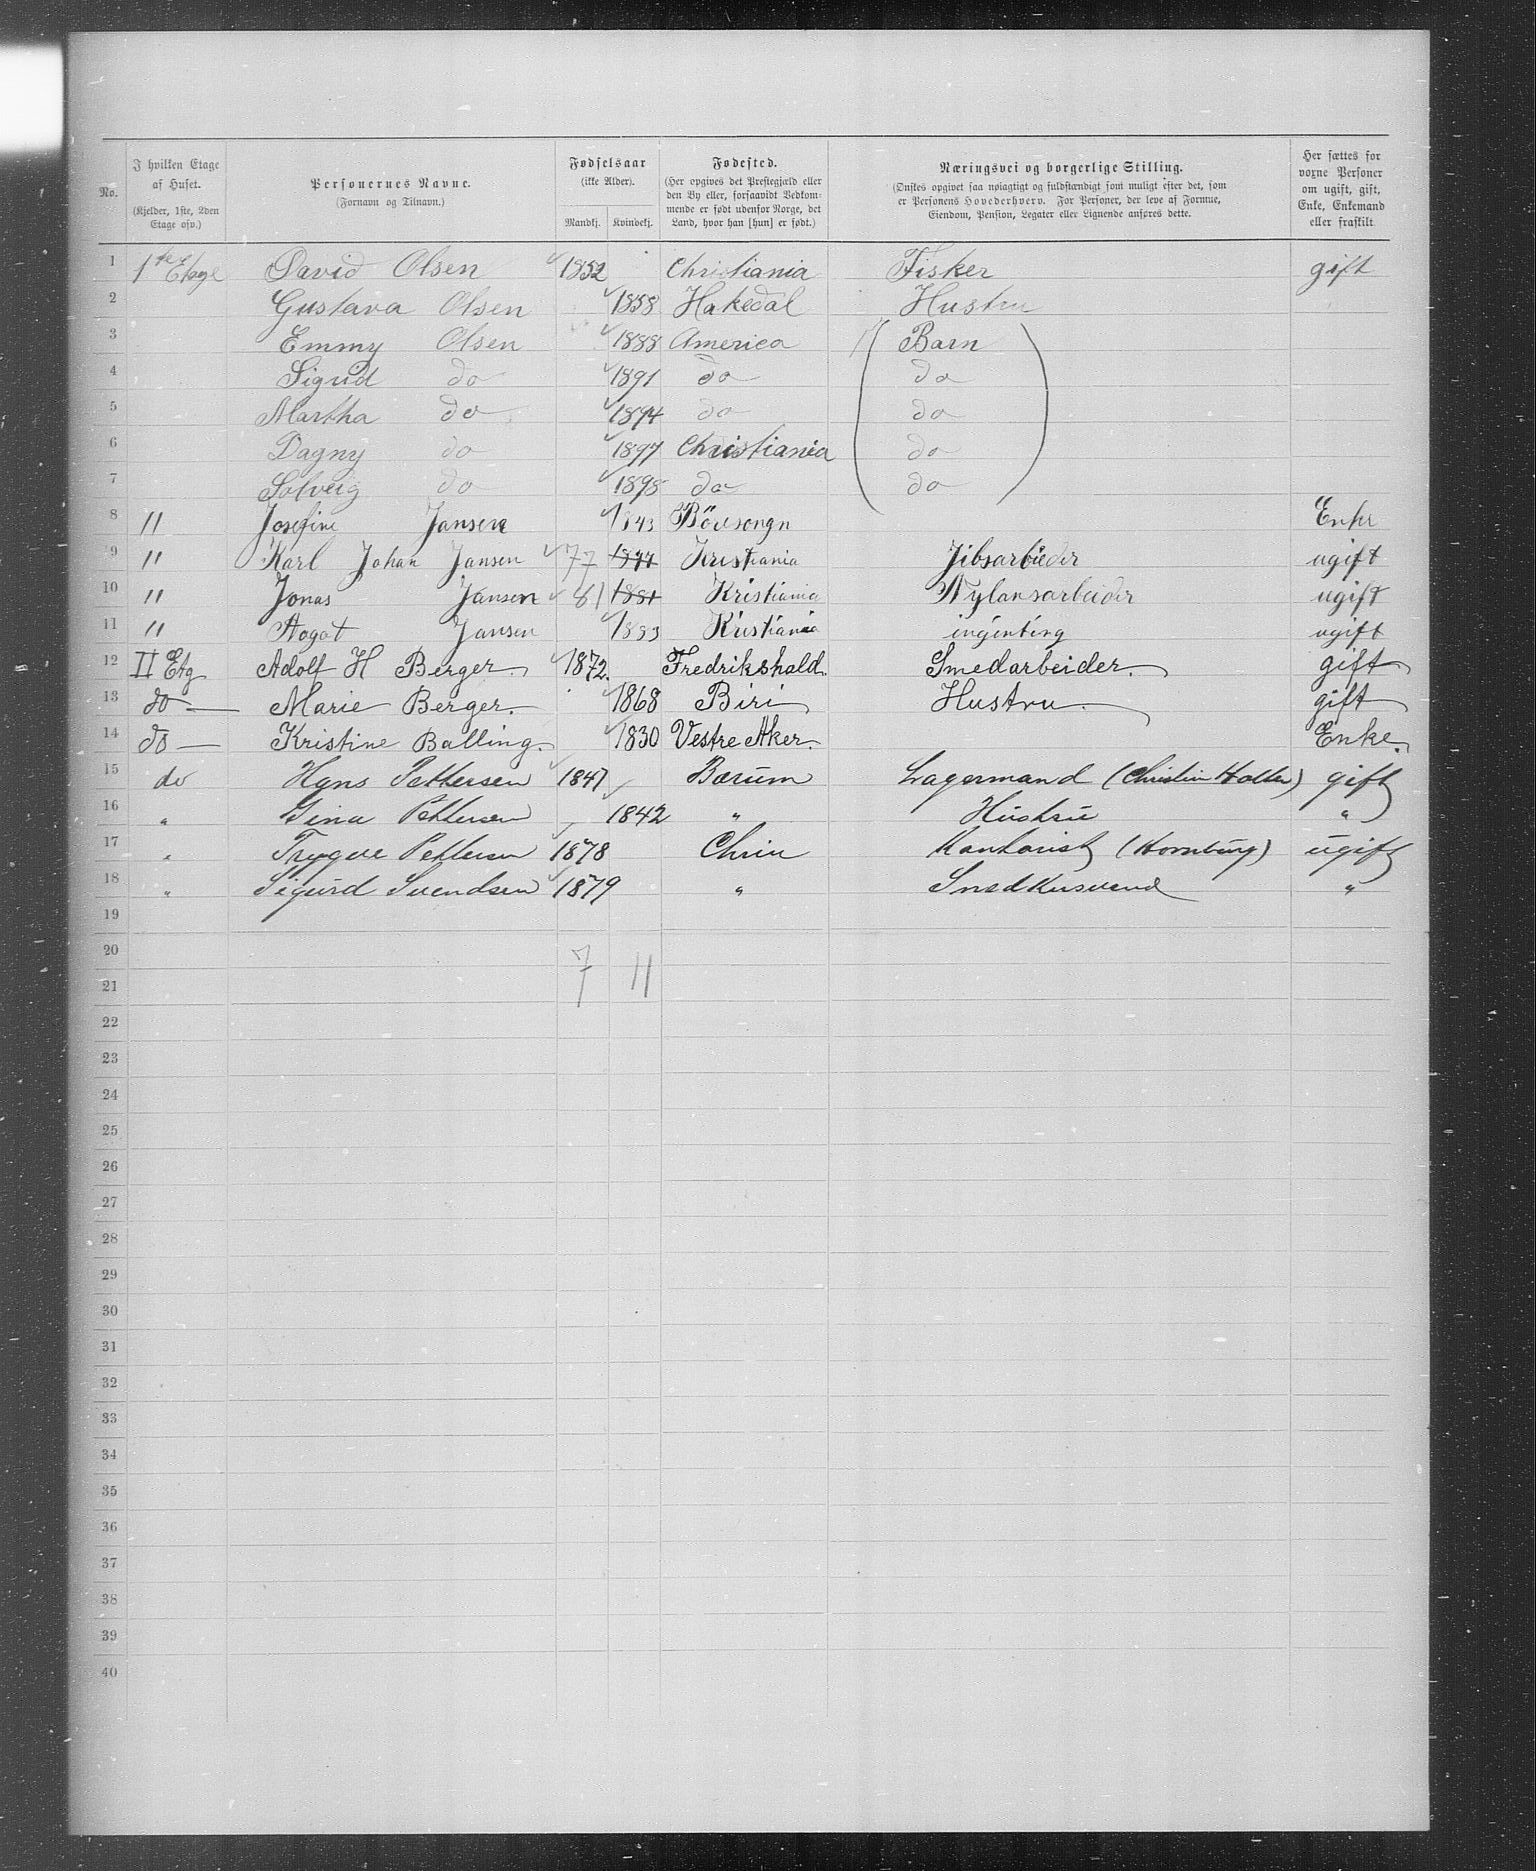 No.
I hvilken Etage af Huset. (Kjelder, 1ste, 2den Etage osv.)
Personernes Navne. (Fornavn og Tilnavn.)
Fødselsaar (ikke Alder). Mandkj. Kvindekj.
Fødested. (Her opgives det Prestegjæld eller den By eller, forsaavidt Vedkommende er født udenfor Norge, det Land, hvor han [hun] er født.)
Næringsvei og borgerlige Stilling. (Ønskes opgivet saa nøiagtigt og fuldstændigt som muligt efter det, som er Personens Hovederhverv. For Personer, der leve af Formue, Eiendom, Pension, Legater eller Lignende anføres dette.)
Her sættes for voxne Personer om ugift, gift, Enke, Enkemand eller fraskilt
1 1ste Etage David Olsen 1852 Christiania Fisker gift
2 Gustava Olsen 1858 Hakedal Hustru
3 Emmy Olsen 1888 America ( Barn )
4 Sigrid do 1891 do do
5 Martha do 1894 do do
6 Dagny do 1897 Christiania do
7 Solveig do 1898 do do
8 " Josefine Jansen 1843 Enke
9 " Karl Johan Jansen 77 1877 Kristiania Jibsarbeider ugift
10 " Jonas Jansen 81 1881 Kristiania Nylansarbeider ugift
11 " Aagot Jansen 1883 Kristiania ingenting ugift
12 II Etg Adolf H Berger. 1872. Fredrikshald. Smedarbeider. gift
13 do — Marie Berger. 1868 Biri Hustru. gift
14 do — Kristine Balling. 1830 Vestre Aker. Enke.
15 do Hans Pettersen 1847 Bærum Lagermand (Christin Holter) gift
16 " Gina Pettersen 1842 " Hustru "
17 " Trygve Pettersen 1878 Chria Kontorist (Hornburg) ugift
18 " Sigurd Svendsen 1879 " Snedkersvend "
19
20
7 11
21
22
23
24
25
26
27
28
29
30
31
32
33
34
35
36
37
38
39
40